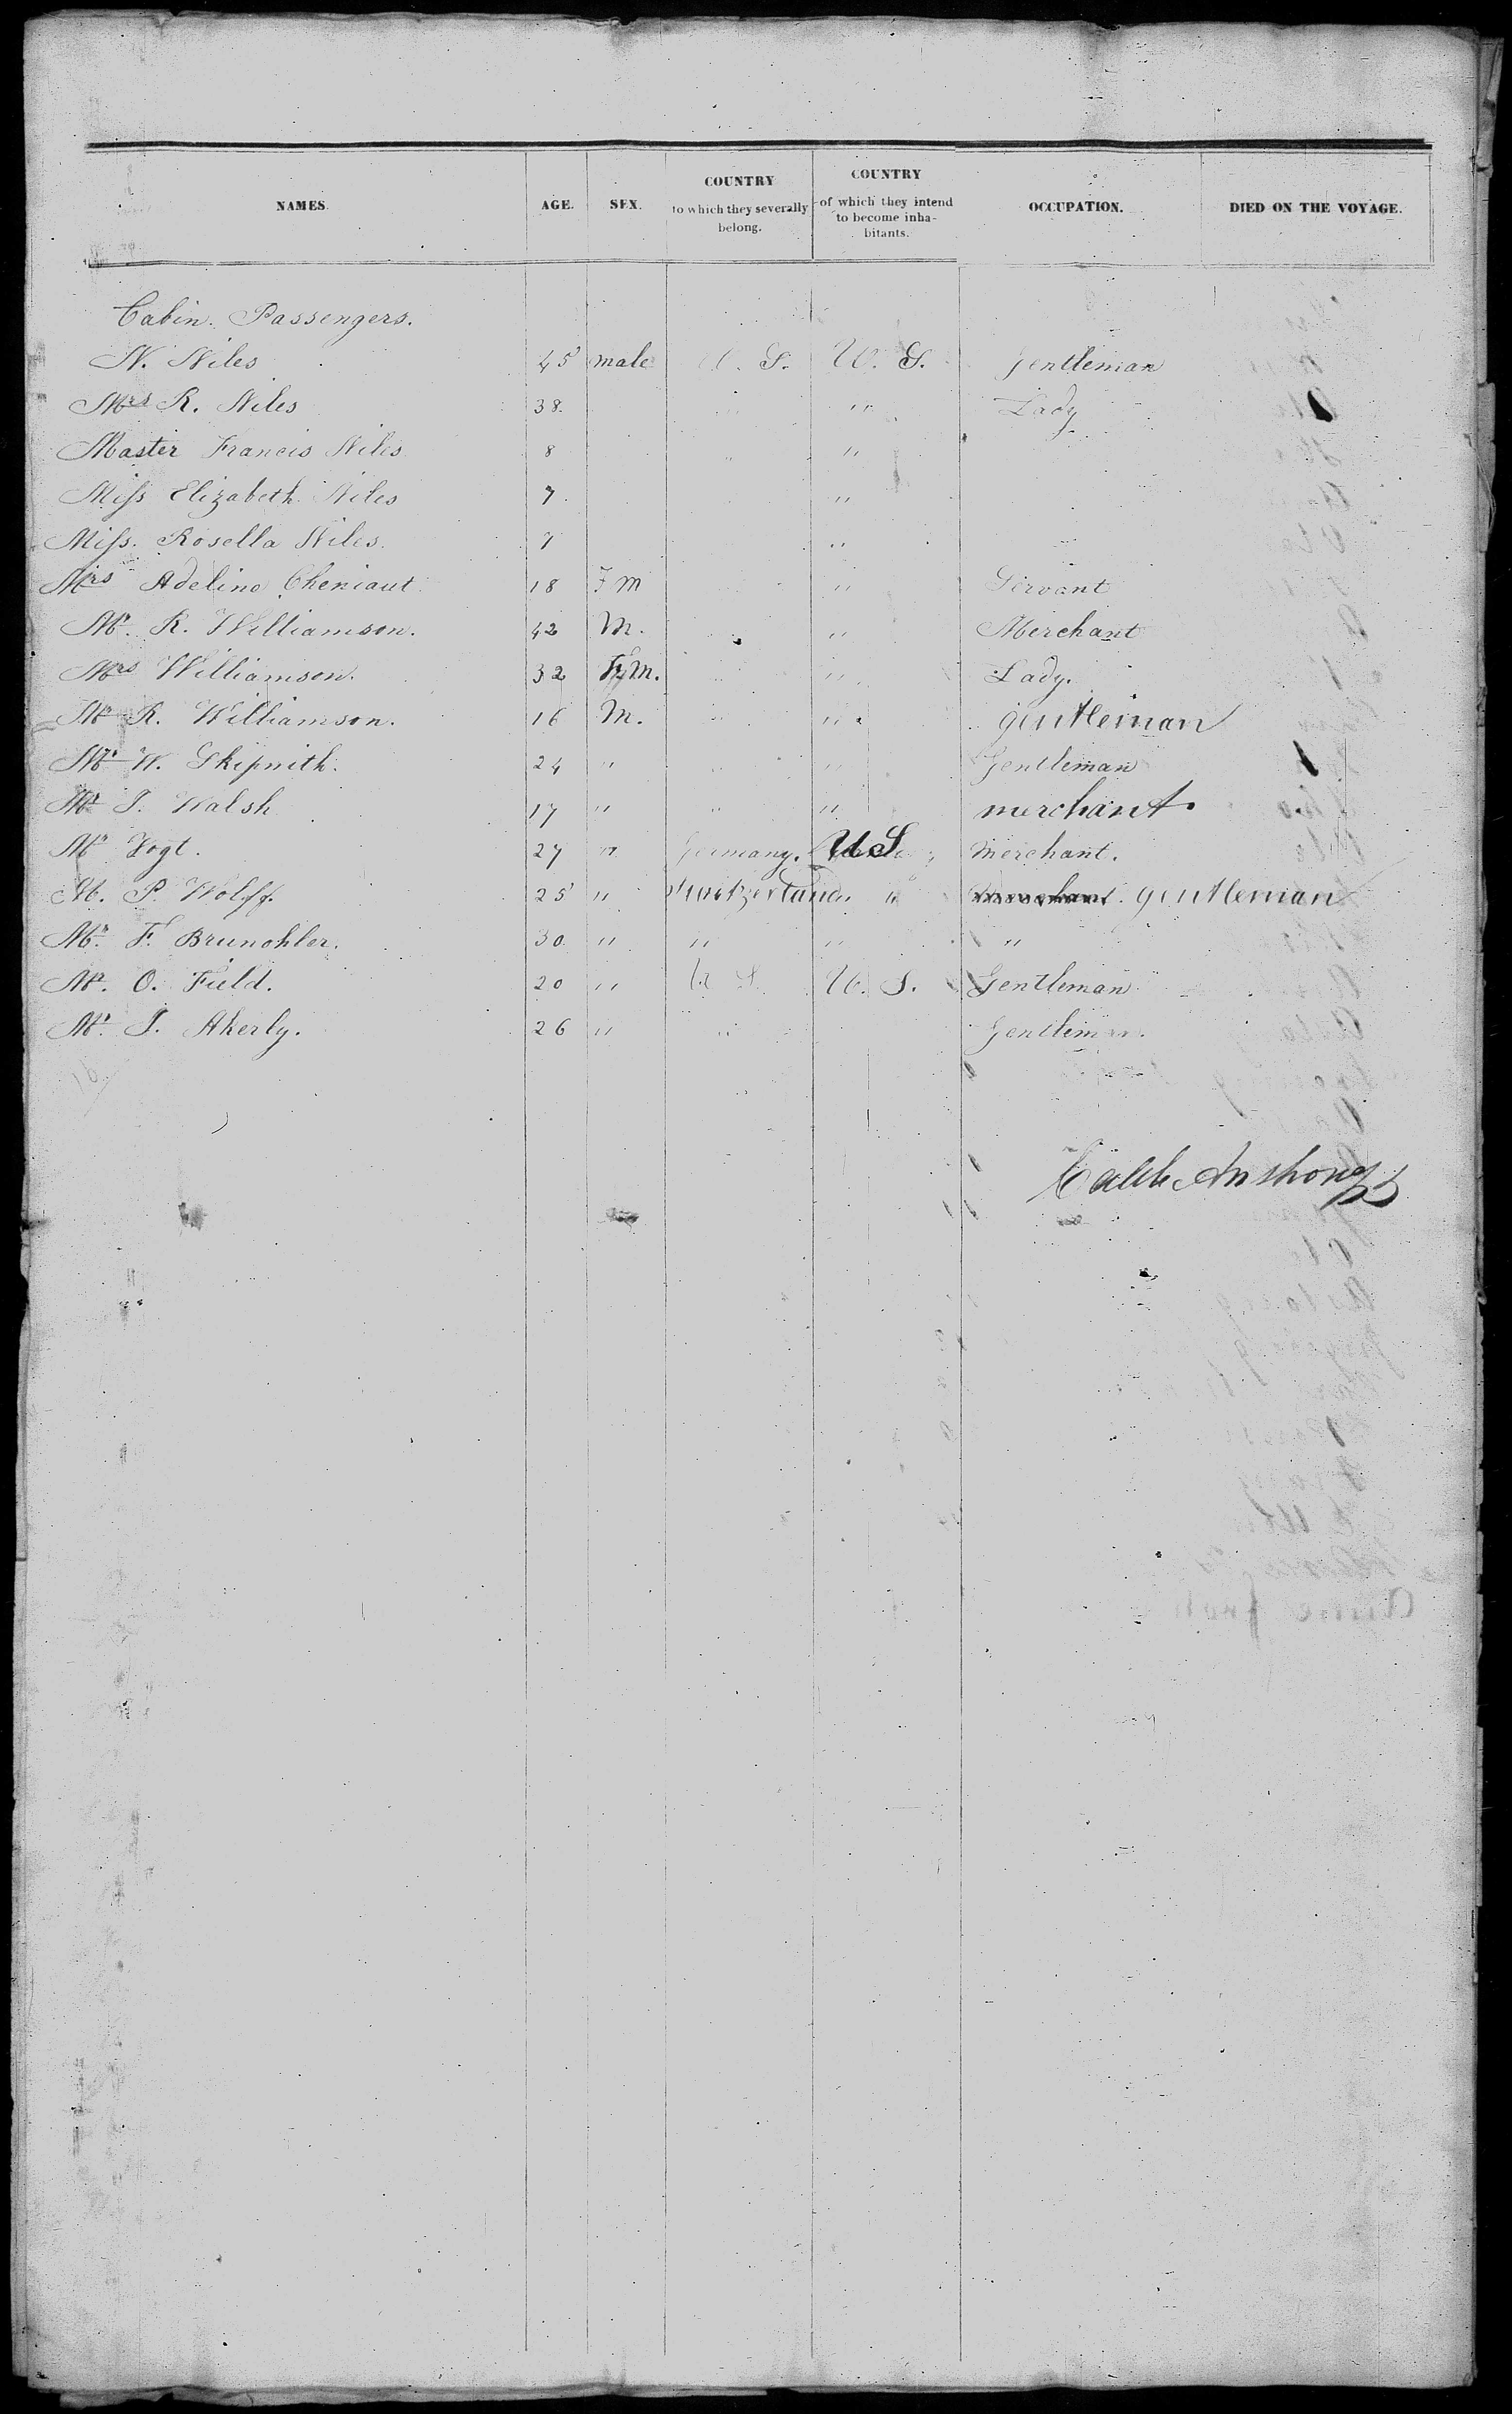 NAMES. AGE. SEX. COUNTRY to which they severally belong. COUNTRY of which they intend to become inhabitants. OCCUPATION. DIED ON THE VOYAGE.
Cabin. Passengers.
N. Niles 45 male U. S. U. S. Gentleman
Mrs R. Niles 38. " " Lady
Master Francis Niles 8 " "
Miss Elizabeth Niles 7. "
Miss. Rosella Niles. 7 "
Mrs Adeline Cheniaut 18 Fm " Servant
Mr. R. Williamson. 42 M. " Merchant
Mrs Williamson. 32 Fm. " " Lady.
Mr R. Williamson. 16 M. " " gentleman
Mr W. Skipwith. 24 " " " Gentleman
Mr J. Walsh 17 " " " merchant.
Mr Vogt. 27 " Germany. U S Merchant.
M. P. Wolff. 25 " Switzerland " merchant. gentleman
Mr. F. Brunohler. 30. " " " "
Mr. O. Field. 20 " U S. U. S. Gentleman
Mr. J. Akerly. 26 " " Gentleman.
16
Caleb Anthony